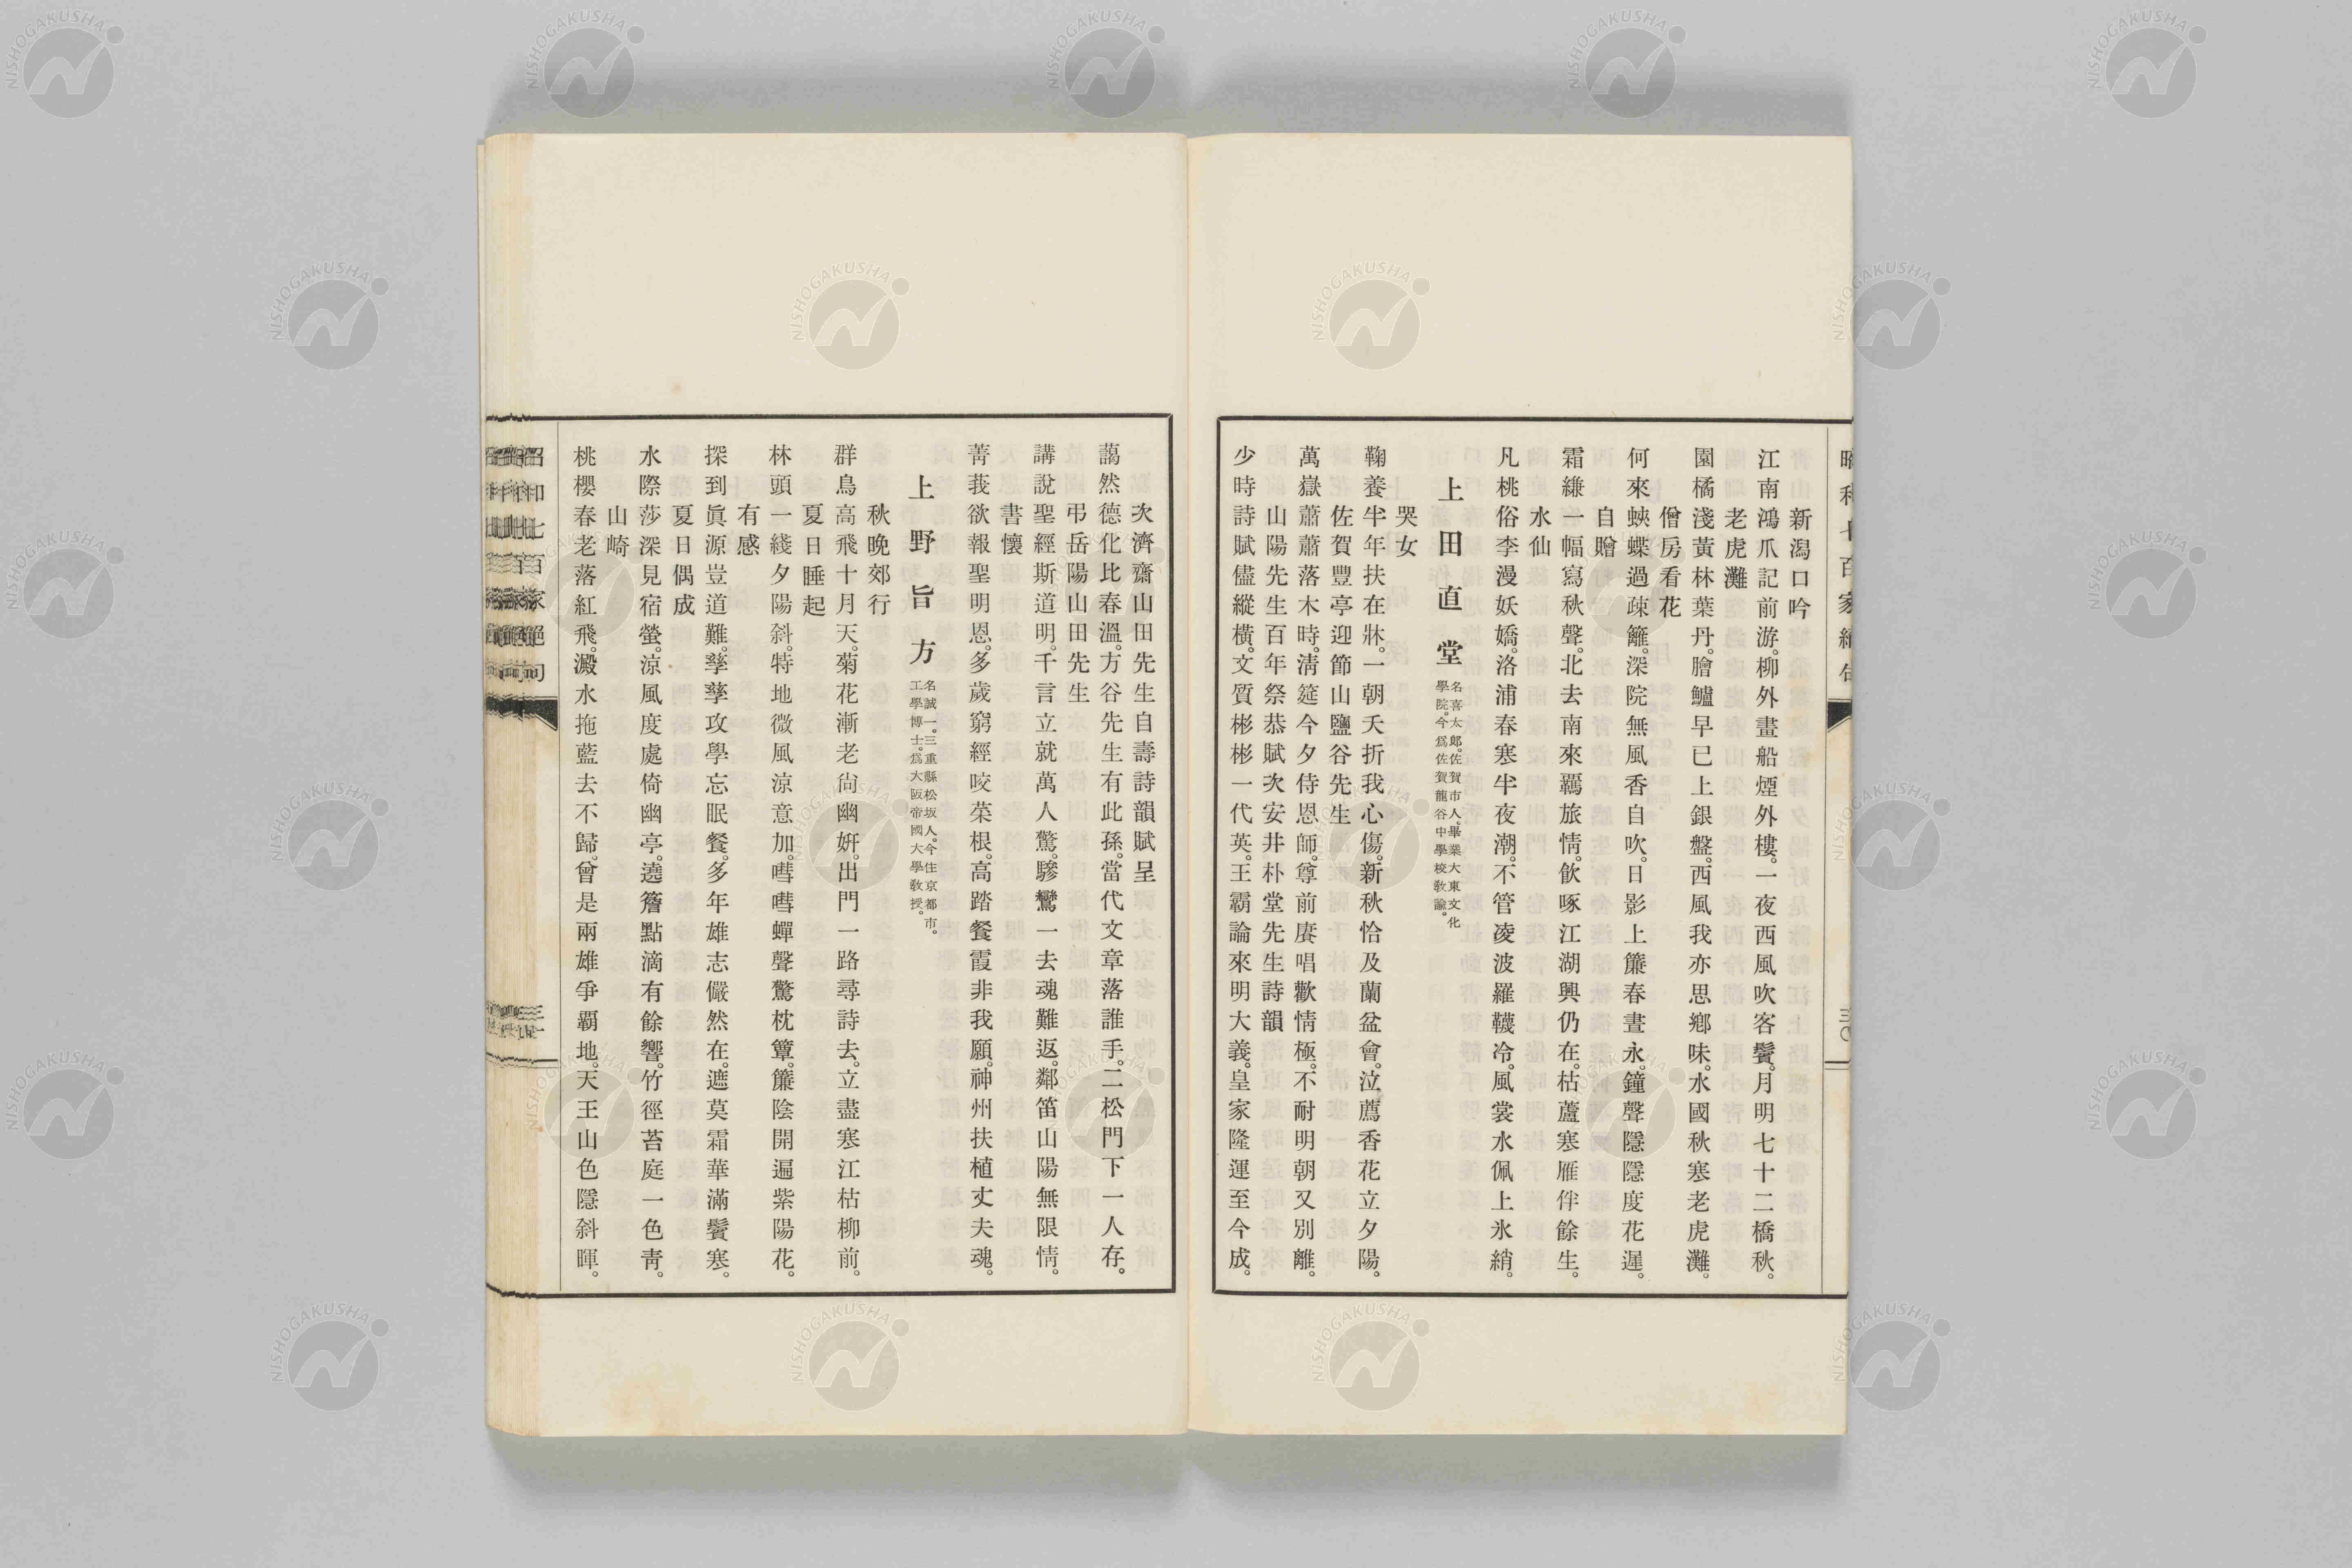 新潟口吟
江南鴻爪記前游。柳外畫船煙外樓。一夜西風吹客鬢。月明七十二橋秋。
老虎灘
園橘淺黃林葉丹。膾鱸早已上銀盤。西風我亦思鄕味。水國秋寒老虎灘。
僧房看花
何來蛺蝶過疎籬。深院無風香自吹。日影上簾春晝永。鐘聲隱隱度花遲。
自贈
霜縑一幅寫秋聲。北去南來羈旅情。飮啄江湖興仍在。枯蘆寒雁伴餘生。
水仙
凡桃俗李漫妖嬌。洛浦春寒半夜潮。不管凌波羅韈冷。風裳水佩上氷綃。
上田直堂
名喜太郎。佐賀市人。畢業大東文化
學院。今爲佐賀龍谷中學校敎諭。
哭女
鞠養半年扶在牀。一朝夭折我心傷。新秋恰及蘭盆會。泣薦香花立夕陽。
佐賀豐亭迎節山鹽谷先生
萬嶽蕭蕭落木時。淸筵今夕侍恩師。尊前賡唱歡情極。不耐明朝又別離。
山陽先生百年祭恭賦次安井朴堂先生詩韻
少時詩賦儘縱橫。文質彬彬一代英。王霸論來明大義。皇家隆運至今成。
昭和七百家絕句
三〇
次濟齋山田先生自壽詩韻賦呈
藹然德化比春溫。方谷先生有此孫。當代文章落誰手。二松門下一人存。
弔岳陽山田先生
講說聖經斯道明。千言立就萬人驚。驂鸞一去魂難返。鄰笛山陽無限情。
書懷
菁莪欲報聖明恩。多歲窮經咬菜根。高踏餐霞非我願。神州扶植丈夫魂。
上野旨方
名誠一。三重縣松坂人。今住京都市。
工學博士。爲大阪帝國大學敎授。
秋晚郊行
群鳥高飛十月天。菊花漸老尙幽姸。出門一路尋詩去。立盡寒江枯柳前。
夏日睡起
林頭一綫夕陽斜。特地微風涼意加。嘒嘒蟬聲驚枕簟。簾陰開遍紫陽花。
有感
探到眞源豈道難。孳孳攻學忘眠餐。多年雄志儼然在。遮莫霜華滿鬢寒。
夏日偶成
水際莎深見宿螢。涼風度處倚幽亭。遶簷點滴有餘響。竹徑苔庭一色靑。
山崎
桃櫻春老落紅飛。澱水拖藍去不歸。曾是兩雄爭覇地。天王山色隱斜暉。
昭和七百家絕句
三一